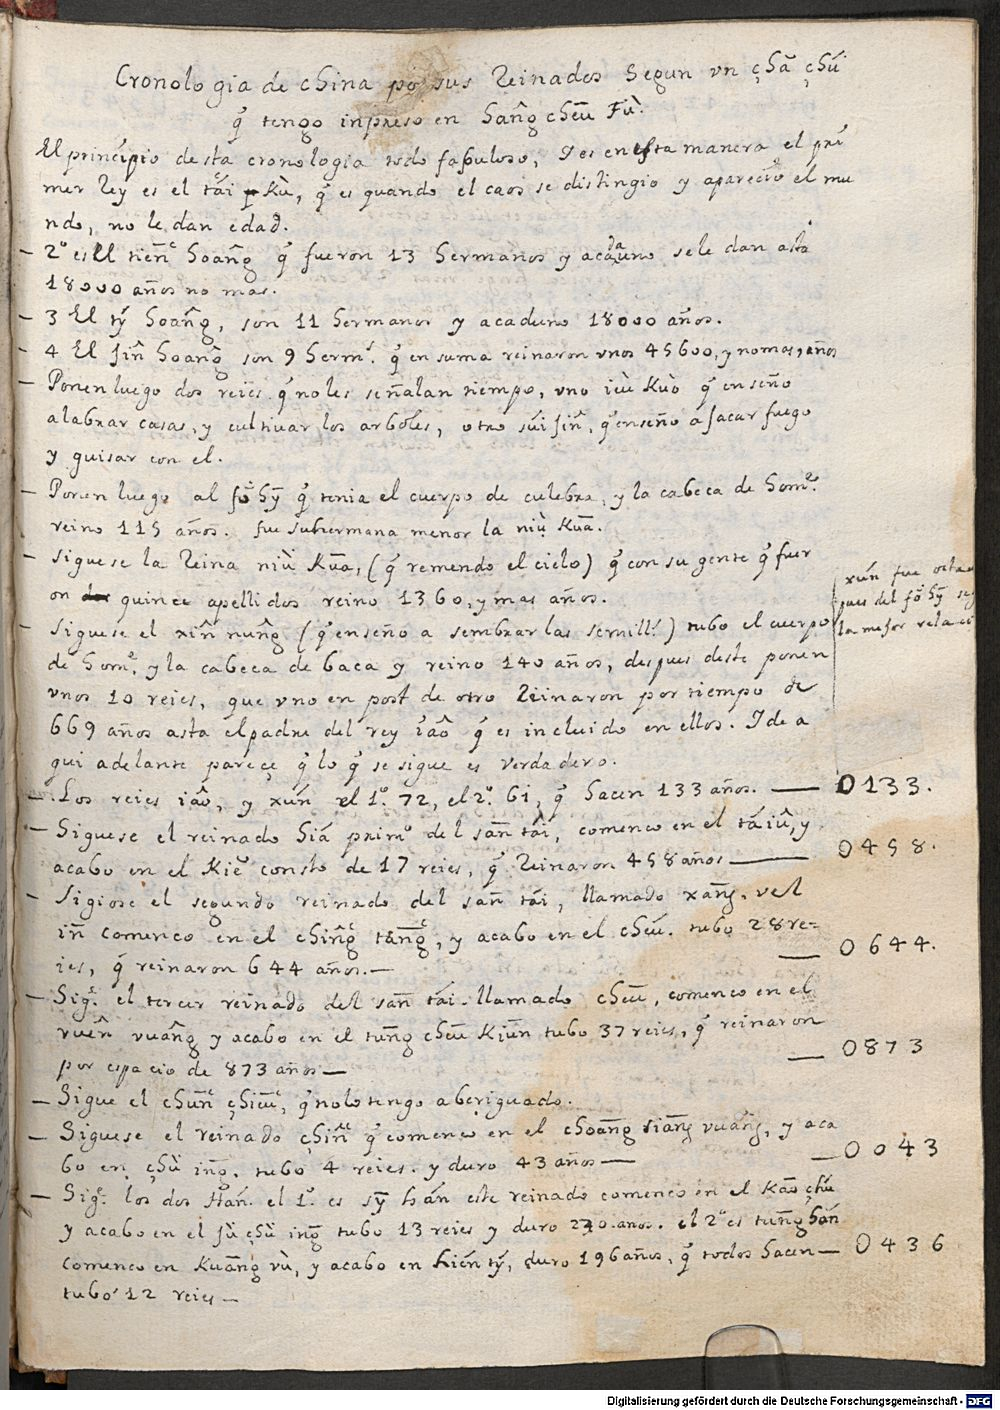 Cronologia de china por sus Reinados Segun vn çhā çhú
q̃ tengo inpreso en hanĝ cheū Fù.
El principio desta cronologia todo fabuloso, I es en esta manera el pri
mer Rey es el tái Kù, q̃ es quando el caos se distingio y aparecio el mu
ndo, no le dan edad.
– 2º es El tien hoanĝ q̃ fueron 13 hermanos y acada uno se le dan asta
18000 años no mas.
– 3 El tý hoanĝ, son 11 hermanos y acaduno 18000 años.
– 4 El jin̂ hoanĝ son 9 herm.ˢ q̃ en suma reinaron vnos 45600, y nomas, años
– Ponen luego dos reies q̃ noles señalan tiempo, vno ieù Kuò q̃ enseño
alabrar casas, y cultivar los arboles, otro súi jin̂, q̃ enseño á sacar fuego
y guisar con el.
– Ponen luego al fŏ hȳ q̃ tenia el cuerpo de culebra, y la cabeca de homᵉ.
reino 115 años. fue su hermana menor la niù Kuā.
– siguese la Reina niù Kuā, (q̃ remendo el cielo) q̃ con su gente q̃ fuer
on quince apellidos reino 1360, y mas años.
xún fue octa
pues del fŏ hȳ se
la mejor rela
– siguese el xin̂ nunĝ (q̃ enseño a sembrar las semillˢ) tubo el cuerpo
de homᵉ, y la cabeca de baca y reino 140 años, despues deste ponen
vnos 10 reies, que vno en post de otro Reinaron por tiempo de
669 años asta el padre del rey iâo q̃ es incluido en ellos. I de a
qui adelante pareçe q̃ lo q̃ se sigue es verdadero.
– Los reies iâo, y xún el 1º. 72, el 2º. 61, q̃ hacen 133 años. — 0133.
– Siguese el reinado hiá primº del san̄ tâi, comenco en el tá iû, y
acabo en el Kiĕ consto de 17 reies, q̃ Reinaron 458 años — 0458.
– Sigiose el segundo reinado del san̄ tái, llamado xanḡ, vel
in̄ comenco en el chinĝ tanḡ, y acabo en el cheú. tubo 28 re-
ies, q̃ reinaron 644 años. — 0644.
– Sigᵉ. el tercer reinado del san̄ tái. llamado cheū, comenco en el
vuên vuanĝ y acabo en el tunḡ cheū Kiun̄ tubo 37 reies, q̃ reinaron
por espacio de 873 años — 0873
– Sigue el chun̄ çhiū, q̃ nolo tengo aberiguado.
– Siguese el reinado çhin̂ q̃ comenco en el choanḡ sianḡ vuanĝ, y aca
bo en çhù inḡ. tubo 4 reies. y duro 43 años — 0043
– Sigᵉ. los dos Hán. el 1º. es sȳ hán este reinado comenco en el Kāo çhù
y acabo en el jù çhù inḡ tubo 13 reies y duro 240 años. el 2º es tunḡ hán
comenco en Kuanḡ vù, y acabo en hién tý, duro 196 años, q̃ todos hacen — 0436
tubo 12 reies —
Digitalisierung gefördert durch die Deutsche Forschungsgemeinschaft - DFG